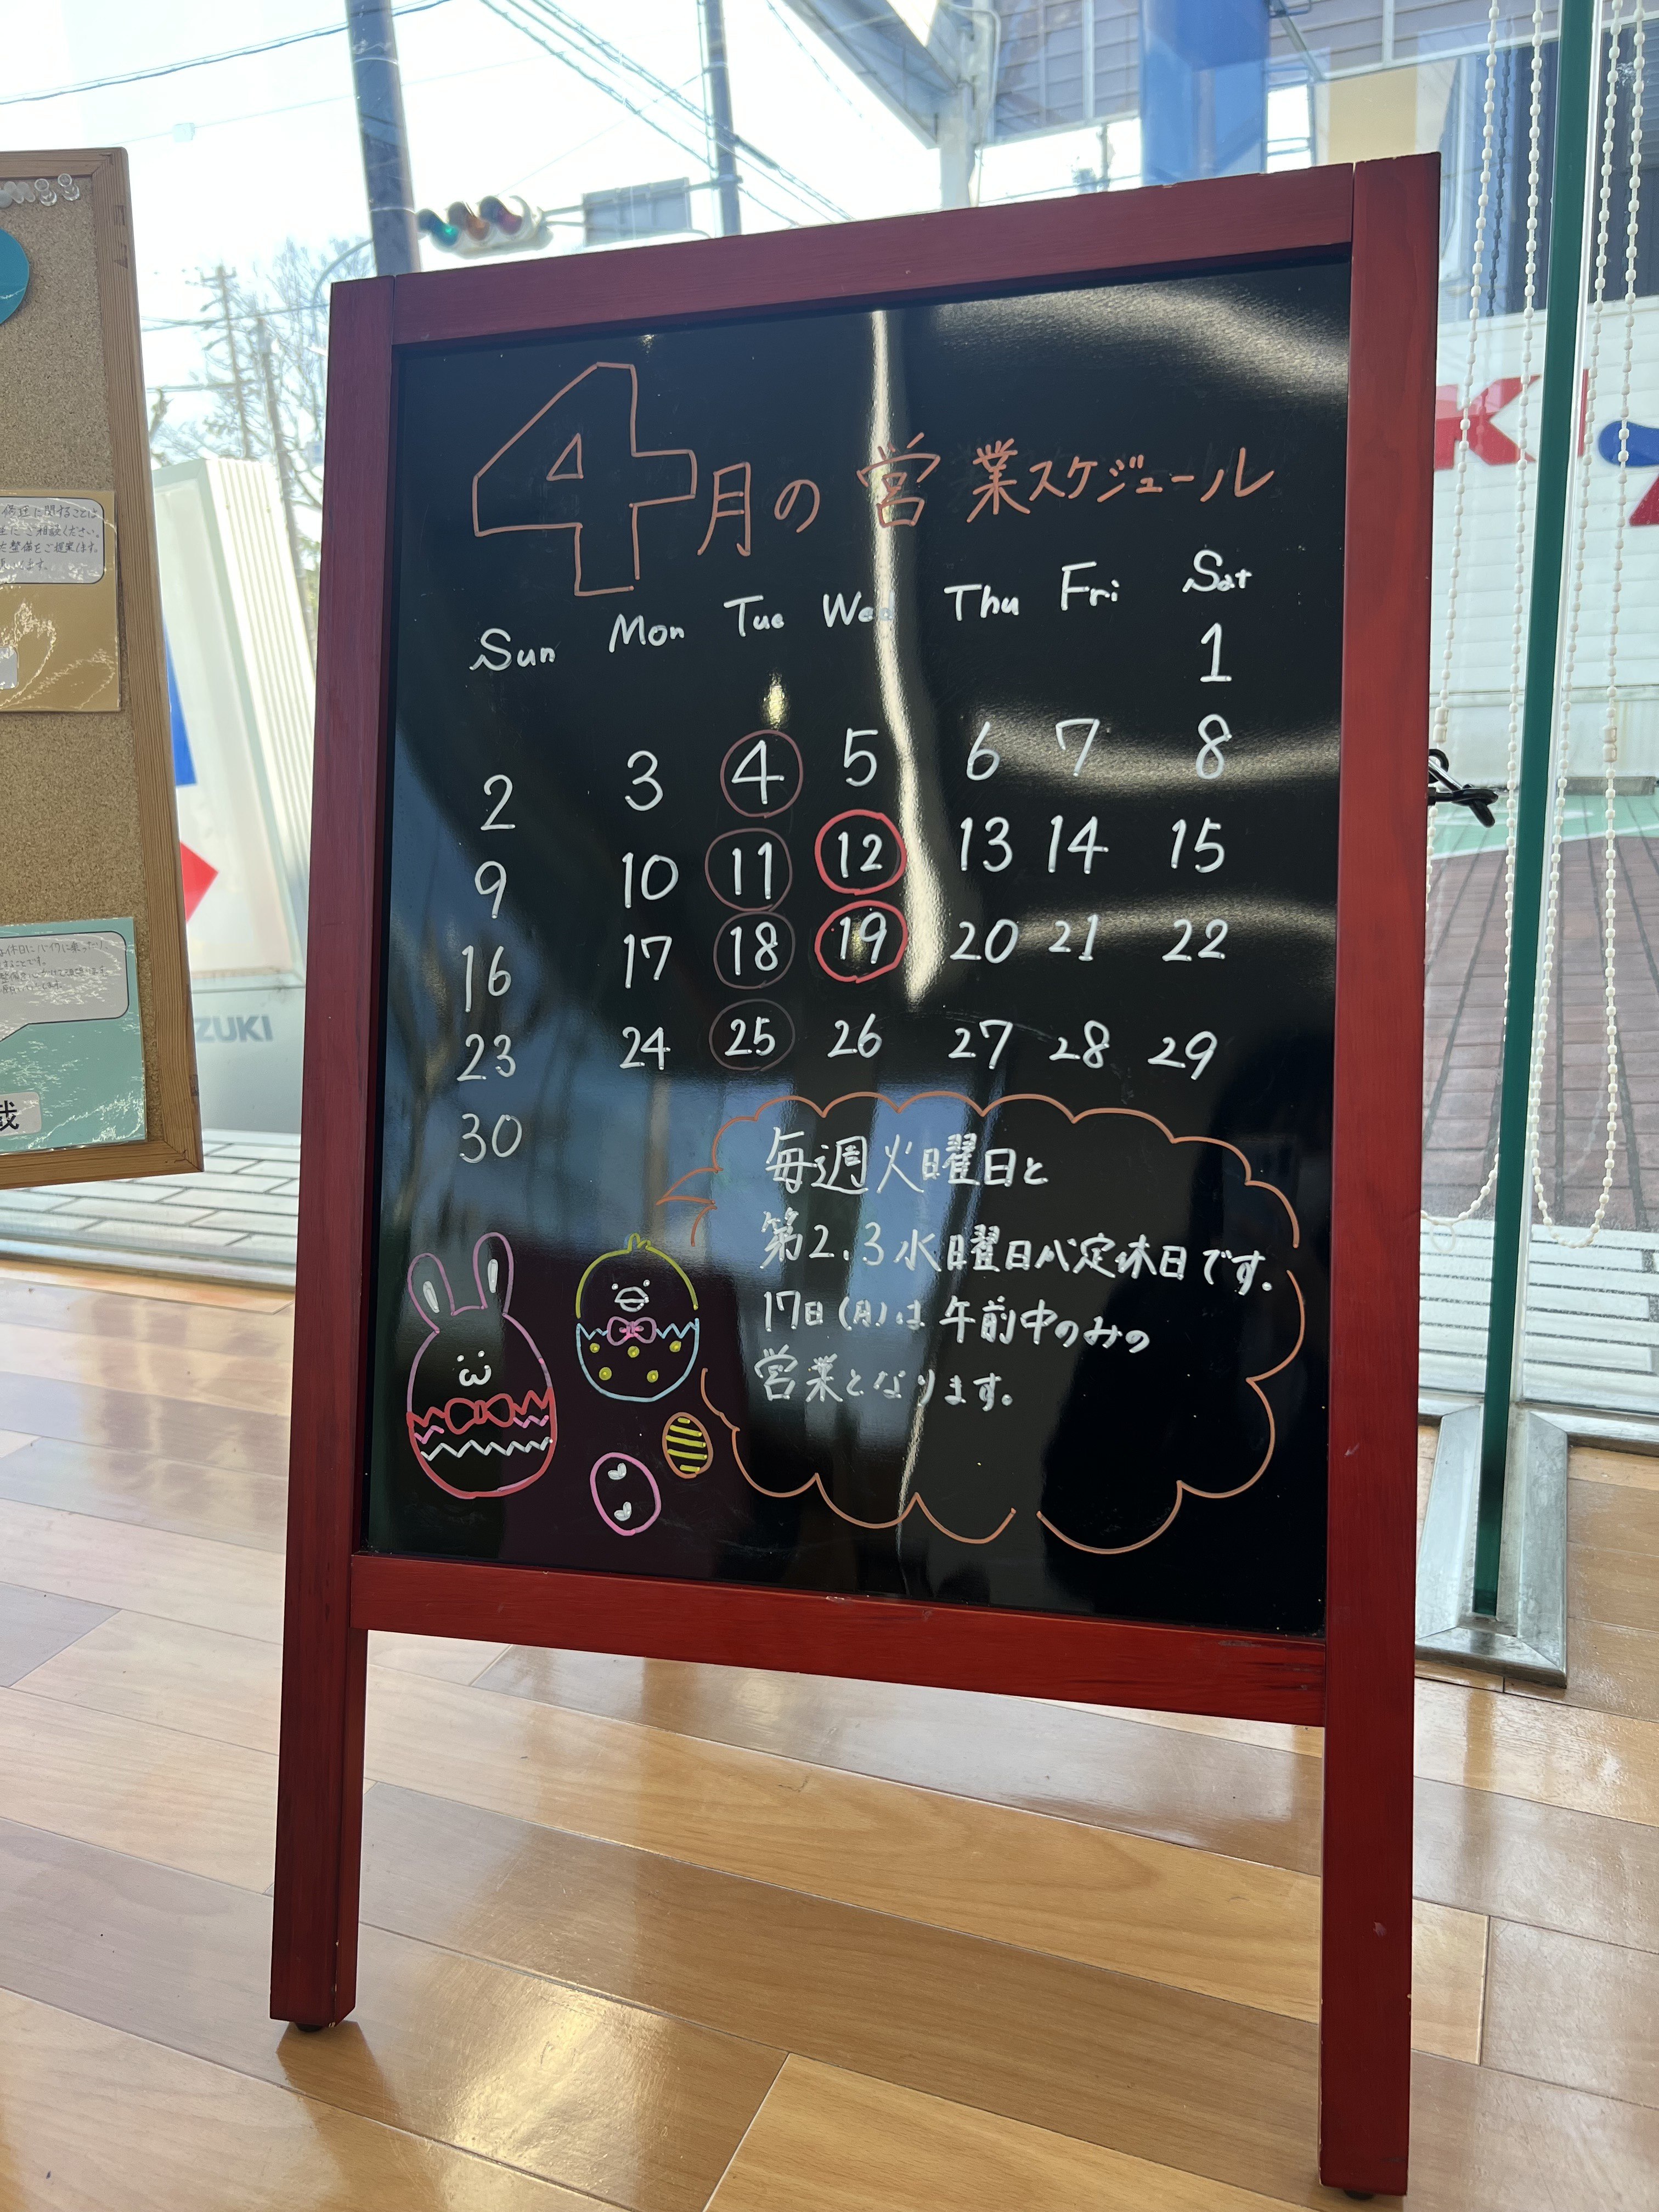 4月の営業スケジュール
Sun Mon Tue Wed Thu Fri Sat
1
2 3 4 5 6 7 8
9 10 11 12 13 14 15
16 17 18 19 20 21 22
23 24 25 26 27 28 29
30
毎週火曜日と
第2.3水曜日が定休日です。
17日(月)は午前中のみの
営業となります。
ZUKI